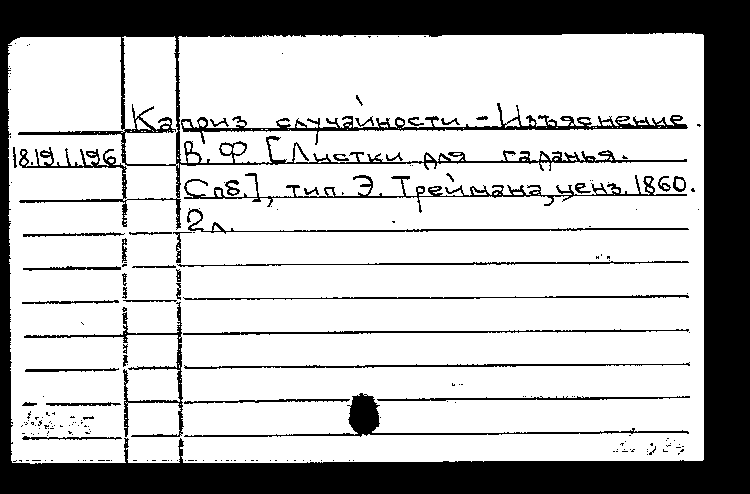 Каприз случайности. - Изъяснение.
18.19.1.196
В. Ф. [Листки для гаданья.
Спб.], тип. Э. Треймана, ценз. 1860.
2 л.